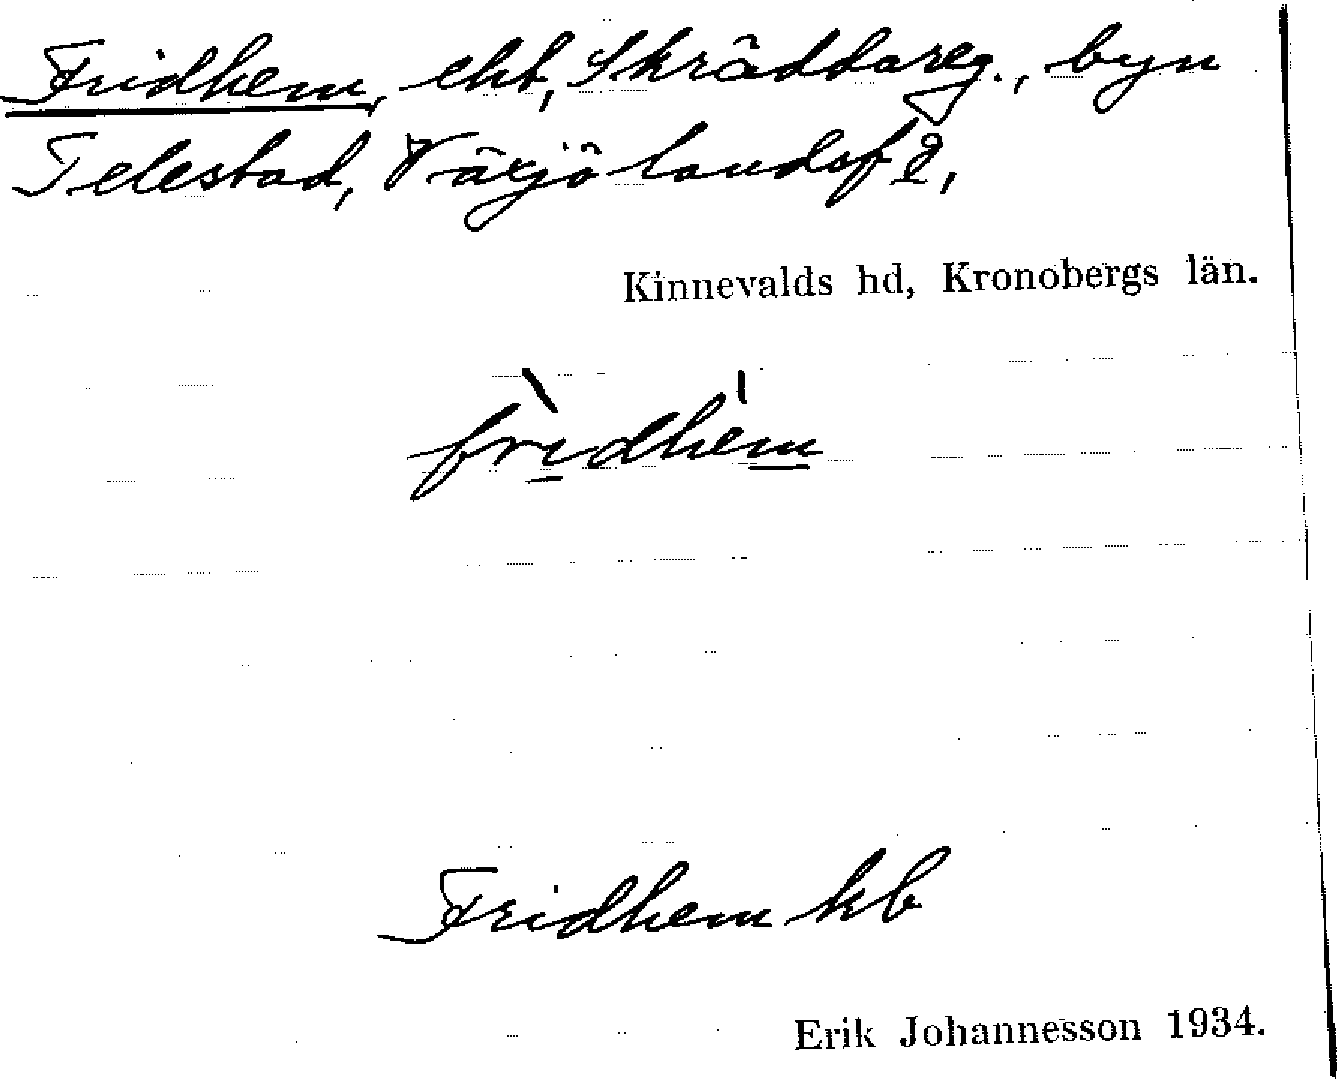 Fridhem, ekt, Skräddareg., byn
Telestad, Växjö landsf 2,
Kinnevalds hd, Kronobergs län.
frìdhém
Fridhem kb
Erik Johannesson 1934.